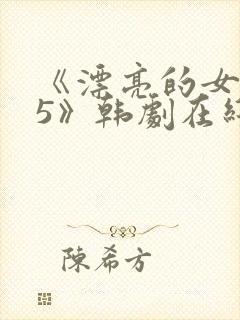 《漂亮的女
5》韩劇在
陳希方